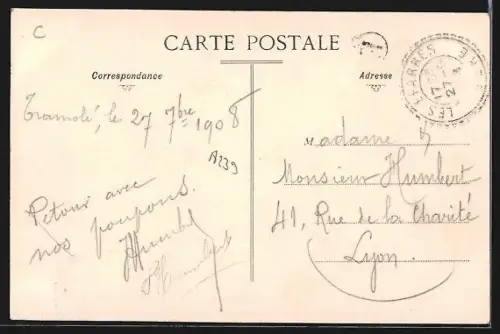 C
CARTE POSTALE
Correspondance
Adresse
LES ÉPARRES
17
27
Tramolé, le 27 7bre 1908
A239
avec
nos poupons.
Humbert
Madame &
Monsieur Humbert
41, Rue de la Charité
Lyon.